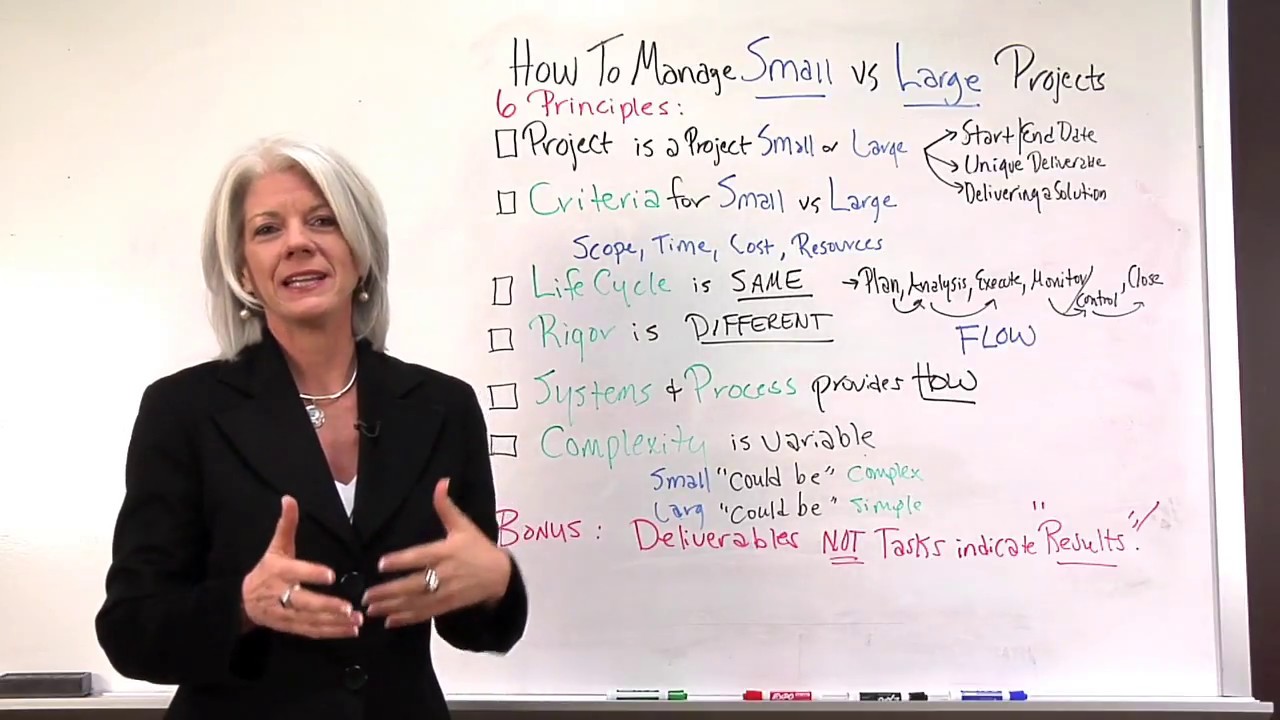 How To Manage Small vs Large Projects
6 Principles:
Project is a Project Small or Large
Start/End Date
Unique Deliverable
Delivering a Solution
Criteria for Small vs Large
Scope, Time, Cost, Resources
Life Cycle is SAME → Plan, Analysis, Execute, Monitor/Control, Close
Rigor is DIFFERENT
FLOW
Systems + Process provides How
Complexity is variable
Small "Could be" Complex
Larg "Could be" Simple
Bonus: Deliverables NOT Tasks indicate "Results"!
EXPO